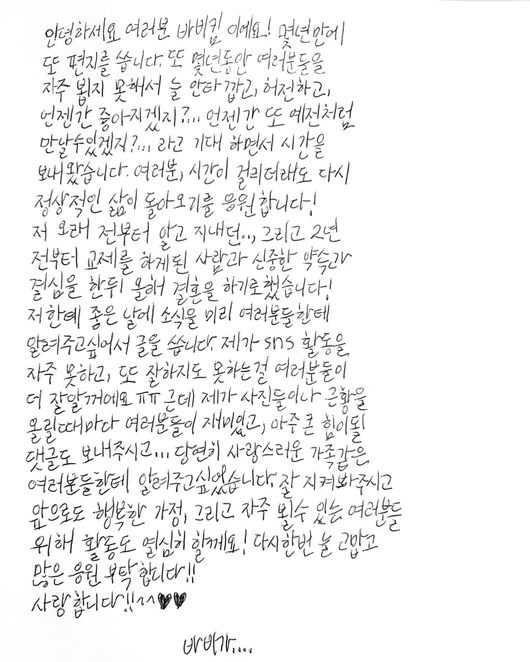 안녕하세요 여러분 바비킴 이에요! 몇년만에
또 편지를 씁니다. 또 몇년동안 여러분들을
자주 뵙지 못해서 늘 안타깝고, 허전하고,
언젠간 좋아지겠지?... 언젠간 또 예전처럼
만날수있겠지?... 라고 기대 하면서 시간을
보내왔습니다. 여러분, 시간이 걸의더래도 다시
정상적인 삶이 돌아오기를 응원합니다!
저 오래 전부터 알고 지내던.., 그리고 2년
전부터 교제를 하게된 사람과 신중한 약속과
결심을 한뒤 올해 결혼을 하기로했습니다!
저한테 좋은 날에 소식을 미리 여러분들한테
알려주고싶어서 글을 씁니다. 제가 sns 활동을
자주 못하고, 또 잘하지도 못하는걸 여러분들이
더 잘알꺼에요 ㅠㅠ 근데 제가 사진들이나 근황을
올릴때마다 여러분들이 재미있고, 아주 큰 힘이될
댓글도 보내주시고... 당연히 사랑스러운 가족같은
여러분들한테 알려주고싶었습니다. 잘 지켜봐주시고
앞으로도 행복한 가정, 그리고 자주 뵐수 있는 여러분들
위해 활동도 열심히 할께요! 다시한번 늘 고맙고
많은 응원 부탁합니다!!
사랑합니다!!^^♥♥
바비가....